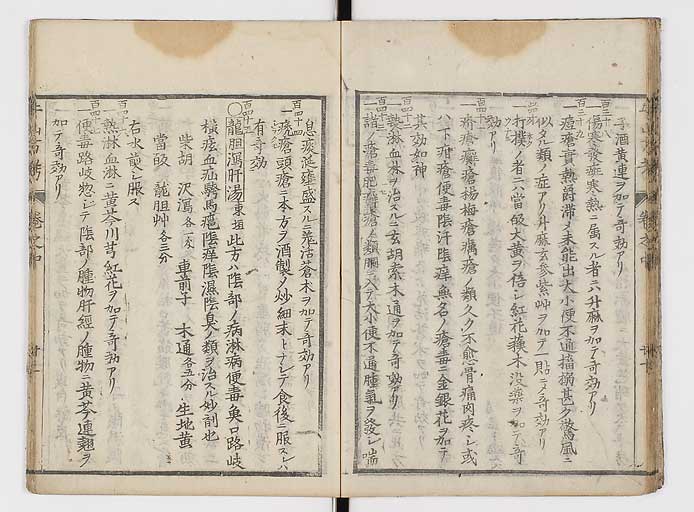 子酒黄連ヲ加テ奇効アリ
百三十八
一傷寒發症寒熱ニ属スル者ニ升麻ヲ加テ奇効アリ
百三十九
一痘瘡實熱欝滞ノ未能出大小便不通搐搦甚ク驚風ニ
似タル類ノ症アリ升麻玄参紫艸ヲ加テ一貼ニメ奇効アリ
一打撲ノ者ニハ當皈大黄ヲ倍シ紅花蘓木没藥ヲ加テ奇
効アリ
百四十一
一疥瘡癬瘡揚梅瘡癘瘡ノ類久ク不愈骨痛肉疼シ或
ハ下疳瘡便毒陰汗陰痒無名ノ瘡毒ニ金銀花ヲ加テ
其効如神
百四十二
一熱淋血淋ヲ治スルニ玄胡索木通ヲ加テ奇効アリ
百四十三
一諸ノ瘡毒肥瘡ノ類胴ニ入テ大小便不通腫氣ヲ發シ喘
息痰涎壅盛スルニ葶藶蒼木ヲ加テ奇効アリ
百四十四
一疣瘡頭瘡ニ本方ヲ酒製メ炒細末トナシテ食後ニ服スレハ
有奇効
百四十五
○龍胆瀉肝湯東垣此方ハ陰部ノ病淋病便毒魚口路岐
横痃血疝騎馬癰陰痒陰濕陰臭ノ類ヲ治スル妙剤也
柴胡 沢瀉各一匁 車前子 木通各五分 生地黄
當皈 龍胆艸各三分
右水煎シ服ス
一熱淋血淋ニ黄芩川芎紅花ヲ加テ奇効アリ
一便毒路岐惣シテ陰部ノ腫物肝経ノ腫物ニ黄芩連翹ヲ
加テ奇効アリ